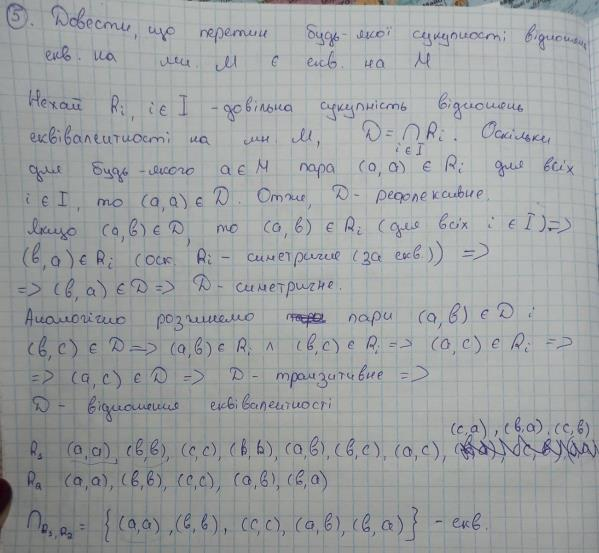 5. Довести, що перетин будь-якої сукупності відношень
екв. на мн. M є екв. на M
Нехай Rᵢ, i ∈ I - довільна сукупність відношень
еквівалентності на мн M, D = ∩ Rᵢ. Оскільки
i ∈ I
для будь-якого a ∈ M пара (a, a) ∈ Rᵢ для всіх
i ∈ I, то (a, a) ∈ D. Отже, D - рефлексивне.
Якщо (a, b) ∈ D, то (a, b) ∈ Rᵢ (для всіх i ∈ I) =>
(b, a) ∈ Rᵢ (оск. Rᵢ - симетричне (за екв.)) =>
=> (b, a) ∈ D => D - симетричне.
Аналогічно розглянемо пари (a, b) ∈ D і
(b, c) ∈ D => (a, b) ∈ Rᵢ ∧ (b, c) ∈ Rᵢ => (a, c) ∈ Rᵢ =>
=> (a, c) ∈ D => D - транзитивне =>
D - відношення еквівалентності
(c, a), (b, a), (c, b)
R₁ (a, a), (b, b), (c, c), (b, b), (a, b), (b, c), (a, c),
R₂ (a, a), (b, b), (c, c), (a, b), (b, a)
∩R₁, R₂ = {(a, a), (b, b), (c, c), (a, b), (b, a)} - екв.